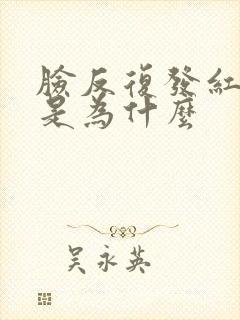 臉反復發紅
是為什麼
吴永英